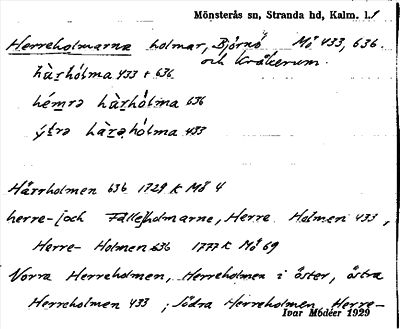 Mönsterås sn, Stranda hd, Kalm. l.
Herreholmarna holmar, Björnö Mö 433, 636.
och Kråkerum.
hàṟhólma 433 + 636
hémṟə hàṟhólma 636
ýtrə hàṟəhólma 433
Härrholmen 636 1729 K Mö 4
herre- och Fälleholmarne, Herre Holmen 433,
Herre- Holmen 636 1777 K Mö 69
Norra Herreholmen, Herreholmen i öster, östra
Herreholmen 433 ; Södra Herreholmen, Herre-
Ivar Modéer 1929